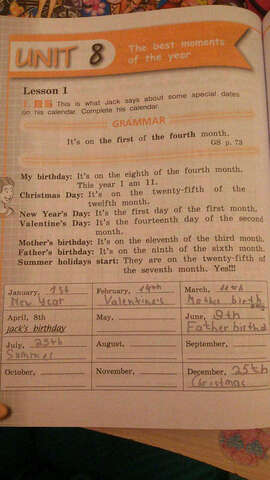 UNIT 8
The best moments
of the year
Lesson 1
1. This is what Jack says about some special dates
on his calendar. Complete his calendar.
GRAMMAR
It's on the first of the fourth month.
GS p. 73
My birthday: It's on the eighth of the fourth month.
This year I am 11.
Christmas Day: It's on the twenty-fifth of the
twelfth month.
New Year's Day: It's the first day of the first month.
Valentine's Day: It's the fourteenth day of the second
month.
Mother's birthday: It's on the eleventh of the third month.
Father's birthday: It's on the ninth of the sixth month.
Summer holidays start: They are on the twenty-fifth of
the seventh month. Yes!!!
January, 1st
New Year
February, 14th
Valentine's
March, 11th
Mother birth
April, 8th
Jack's birthday
May,
June, 9th
Father birthd
July, 25th
Summer
August,
September,
October,
November,
December, 25th
Christmas